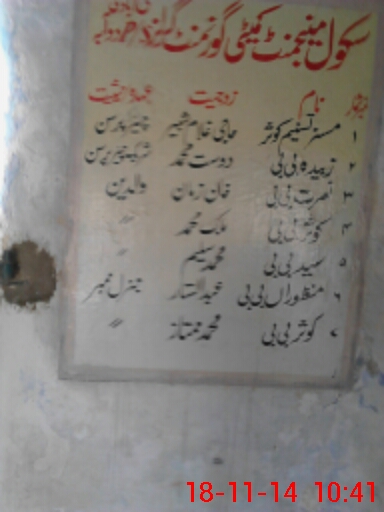 سکول مینجمنٹ کمیٹی گورنمنٹ گرلز
نام زوجیت عہدہ حیثیت
۱ مسز تسنیم کوثر حاجی غلام شبیر چیئرپرسن
۲ زبیدہ بی بی دوست محمد شریک چیئرپرسن
۳ نصرت بی بی خان زمان والدین
۴ کوثر بی بی ملک محمد 〃
۵ سعید بی بی محمد سلیم 〃
۶ منظوراں بی بی عبدالستار جنرل ممبر
۷ کوثر بی بی محمد ممتاز 〃
18-11-14 10:41